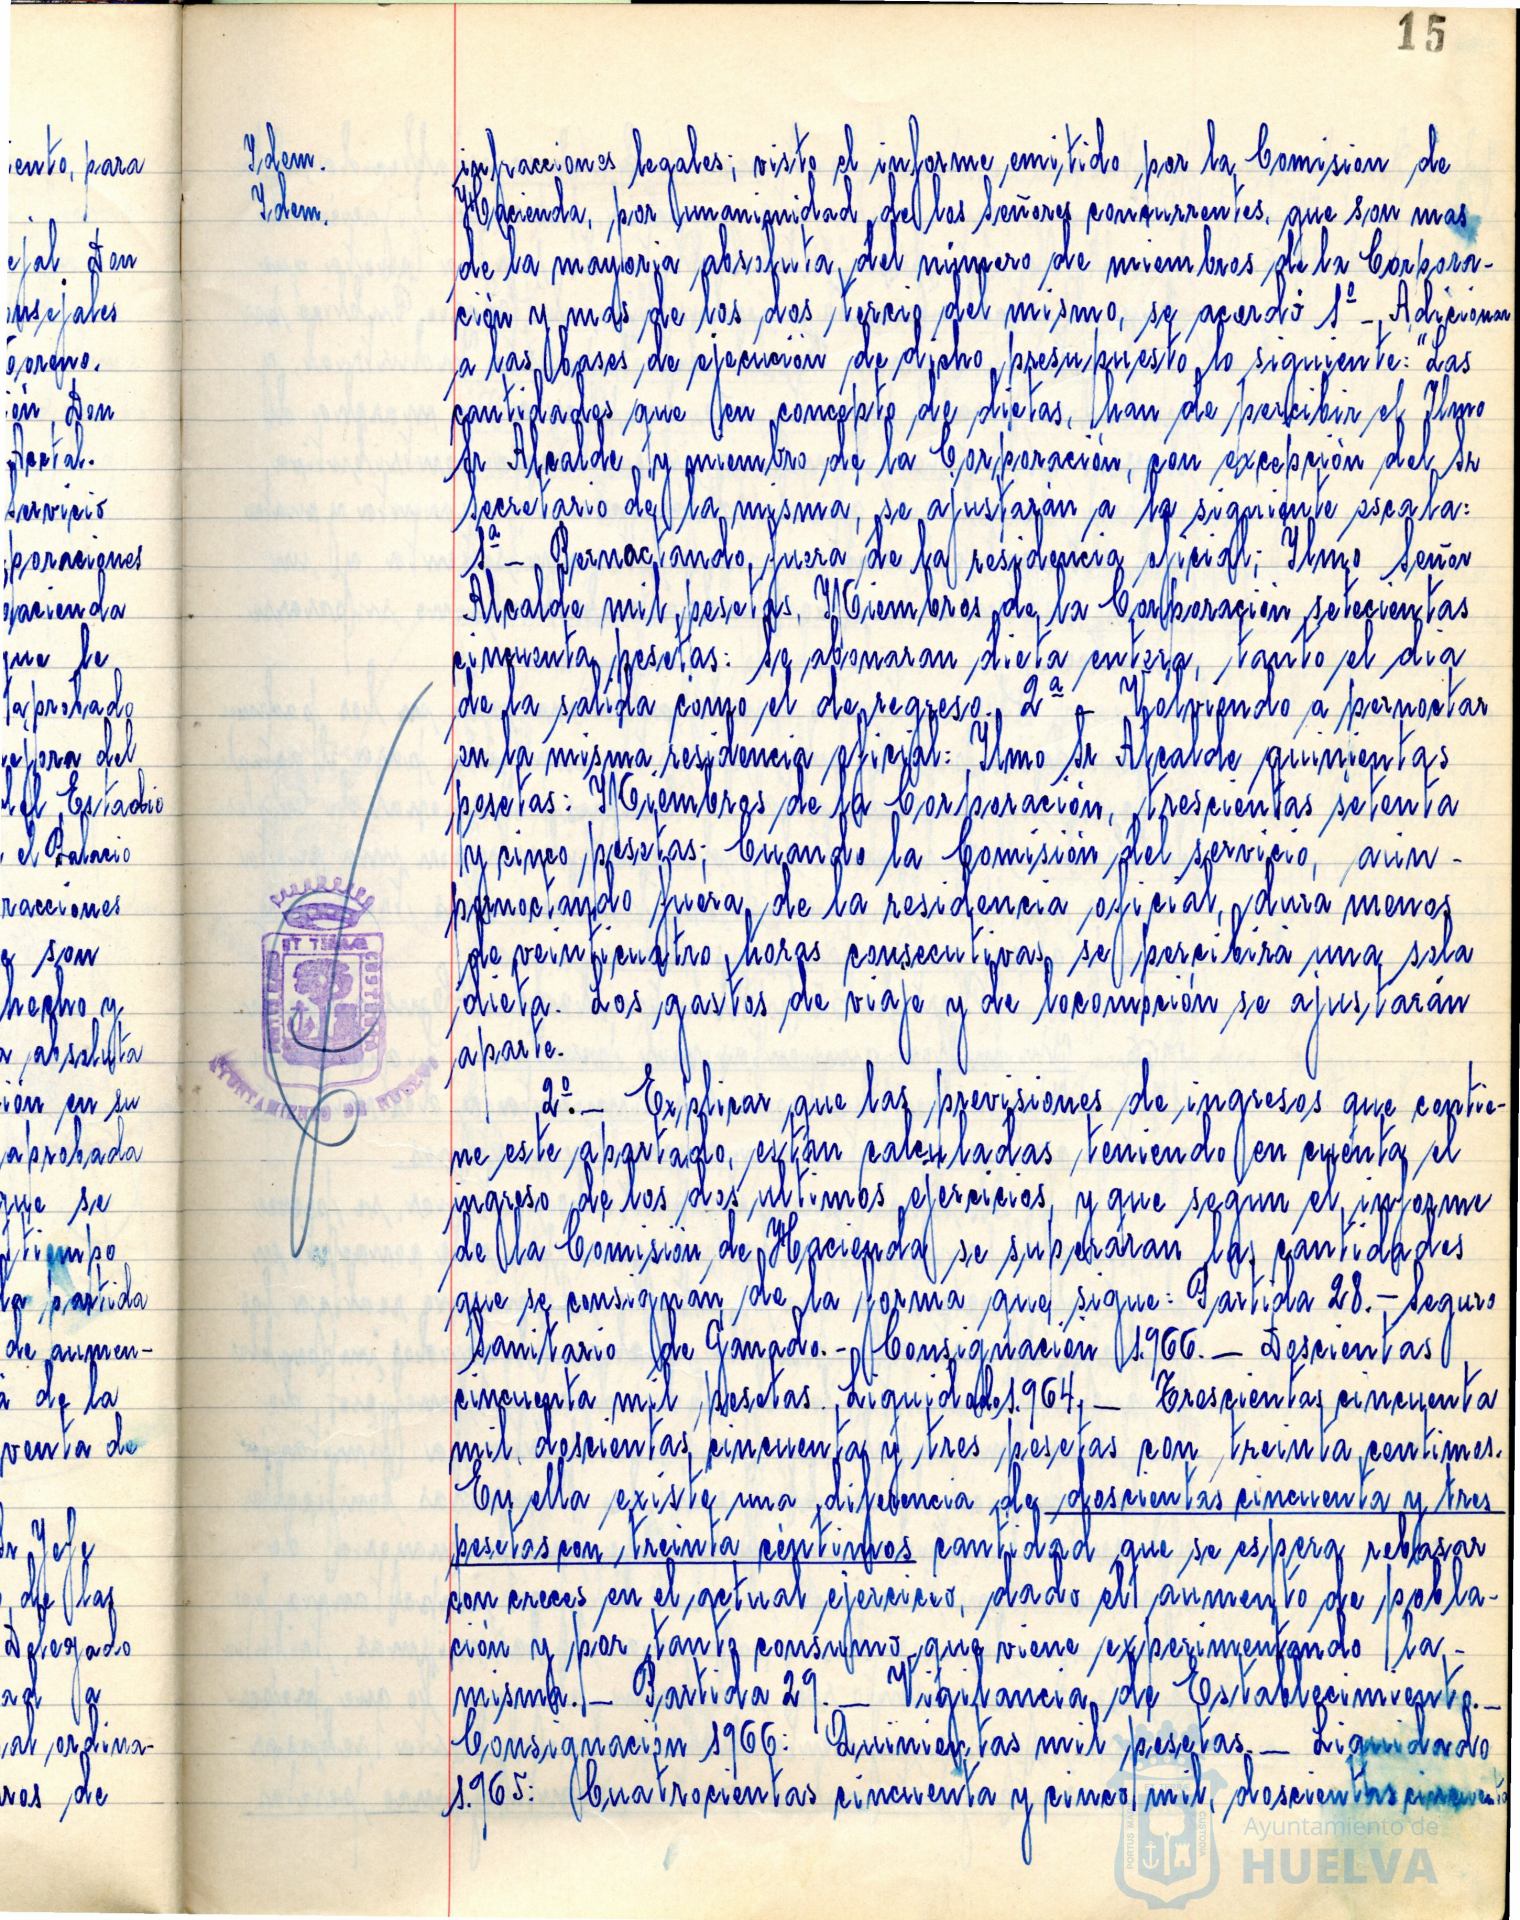 15
iento, para
ejal Don
onsejales
oreno.
ión, Don
Acctal.
Servicio
poraciones
Hacienda
que le
ta probado
del
del Estadio
el Palacio
racciones
son
hecho y
a absoluta
ión en su
aprobada
que se
tiempo
la partida
de aumen-
a de la
venta de
Sr Jefe
de las
Delegado
ad a
al ordina-
ros de
Idem.
Idem.
infracciones legales; visto el informe emitido por la Comision de
Hacienda, por unanimidad de los Señores concurrentes, que son mas
de la mayoria absoluta del número de miembros de la Corpora-
ción y mas de los dos tercio del mismo, se acordó 1º - Adicionar
a las bases de ejecución de dicho presupuesto lo siguiente: "Las
cantidades que en concepto de dietas, han de percibir el Ilmo
Sr Alcalde y miembro de la Corporación, con excepción del Sr
Secretario de la misma, se ajustarán a la siguiente escala:
1ª - Pernoctando fuera de la residencia oficial; Ilmo Señor
Alcalde mil pesetas, Miembros de la Corporación setecientas
cincuenta pesetas: Se abonaran dieta entera, tanto el dia
de la salida como el de regreso. 2ª - Volviendo a pernoctar
en la misma residencia oficial: Ilmo Sr Alcalde quinientas
pesetas: Miembros de la Corporación, trescientas setenta
y cinco pesetas; Cuando la Comisión del servicio, aun-
pernoctando fuera de la residencia oficial, dura menos
de veinticuatro horas consecutivas, se percibirá una sola
dieta. Los gastos de viaje y de locomoción se ajustarán
aparte.
2º.- Explicar que las previsiones de ingresos que contie-
ne este apartado, están calculadas teniendo en cuenta el
ingreso de los dos ultimos ejercicios, y que segun el informe
de la Comisión de Hacienda se superaran las cantidades
que se consignan de la forma que sigue: Partida 28.- Seguro
Sanitario de Ganado.- Consignación 1.966.- Doscientas
cincuenta mil pesetas. Liquidado 1.964.- Trescientas cincuenta
mil doscientas cincuenta y tres pesetas con treinta centimos.
En ella existe una diferencia de doscientas cincuenta y tres
pesetas con treinta céntimos cantidad que se espera rebasar
con creces en el actual ejercicio, dado el aumento de pobla-
ción y por tanto consumo que viene experimentando la-
misma.- Partida 29.- Vigilancia de Establecimiento.-
Consignación 1966: Quinientas mil pesetas.- Liquidado
1.965: Cuatrocientas cincuenta y cinco mil, doscientas cincuenta
AYUNTAMIENTO DE HUELVA
Ayuntamiento de
HUELVA